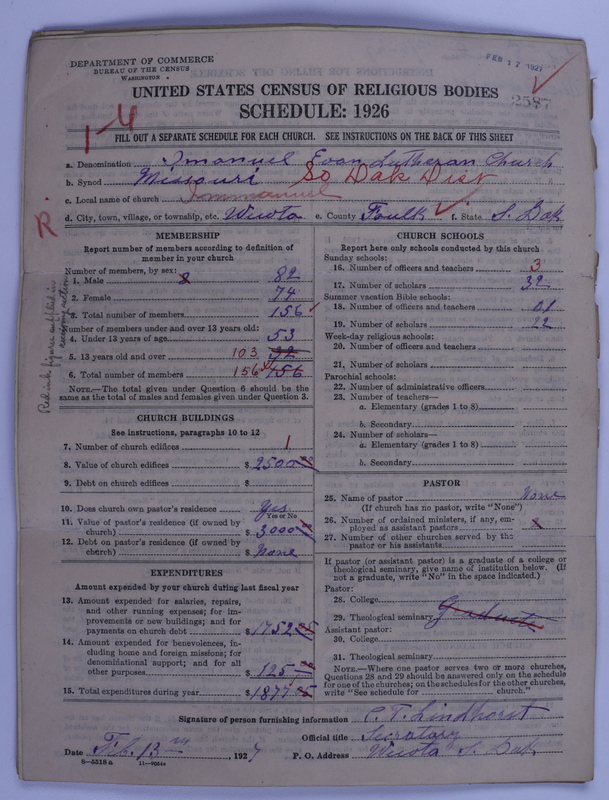 DEPARTMENT OF COMMERCE
BUREAU OF THE CENSUS
WASHINGTON
FEB 17 1927
2587
UNITED STATES CENSUS OF RELIGIOUS BODIES
SCHEDULE: 1926
1-4
FILL OUT A SEPARATE SCHEDULE FOR EACH CHURCH. SEE INSTRUCTIONS ON THE BACK OF THIS SHEET
a. Denomination Imanuel Evan Lutheran Church
b. Synod Missouri So Dak Dist
c. Local name of church Immanuel
d. City, town, village, or township, etc. Wecota e. County Faulk f. State S. Dak
R
MEMBERSHIP
Report number of members according to definition of member in your church
Number of members, by sex:
1. Male 82
2. Female 74
3. Total number of members 156
Number of members under and over 13 years old:
4. Under 13 years of age 53
5. 13 years old and over 103 92
6. Total number of members 156 156
NOTE.—The total given under Question 6 should be the
same as the total of males and females given under Question 3.
Red ink figures supplied in
CHURCH BUILDINGS
See instructions, paragraphs 10 to 12
7. Number of church edifices 1
8. Value of church edifices $2500 00
9. Debt on church edifices $
10. Does church own pastor's residence Yes
Yes or No
11. Value of pastor's residence (if owned by
church) $3000 00
12. Debt on pastor's residence (if owned by
church) $ None
EXPENDITURES
Amount expended by your church during last fiscal year
13. Amount expended for salaries, repairs,
and other running expenses; for im-
provements or new buildings; and for
payments on church debt $1752 05
14. Amount expended for benevolences, in-
cluding home and foreign missions; for
denominational support; and for all
other purposes $125 00
15. Total expenditures during year $1877 05
CHURCH SCHOOLS
Report here only schools conducted by this church
Sunday schools:
16. Number of officers and teachers 3
17. Number of scholars 32
Summer vacation Bible schools:
18. Number of officers and teachers 01
19. Number of scholars 22
Week-day religious schools:
20. Number of officers and teachers
21. Number of scholars
Parochial schools:
22. Number of administrative officers
23. Number of teachers—
a. Elementary (grades 1 to 8)
b. Secondary
24. Number of scholars—
a. Elementary (grades 1 to 8)
b. Secondary
PASTOR
25. Name of pastor None
(If church has no pastor, write "None")
26. Number of ordained ministers, if any, em-
ployed as assistant pastors
27. Number of other churches served by the
pastor or his assistants
If pastor (or assistant pastor) is a graduate of a college or
theological seminary, give name of institution below. (If
not a graduate, write "No" in the space indicated.)
Pastor:
28. College
29. Theological seminary Graduate
Assistant pastor:
30. College
31. Theological seminary
NOTE.—Where one pastor serves two or more churches,
Questions 28 and 29 should be answered only on the schedule
for one of the churches; on the schedules for the other churches,
write "See schedule for church."
Signature of person furnishing information C. T. Lindhorst
Official title Secretary
Date Feb. 13 th, 1927 P. O. Address Wecota S. Dak
8-5518 a 11-9054